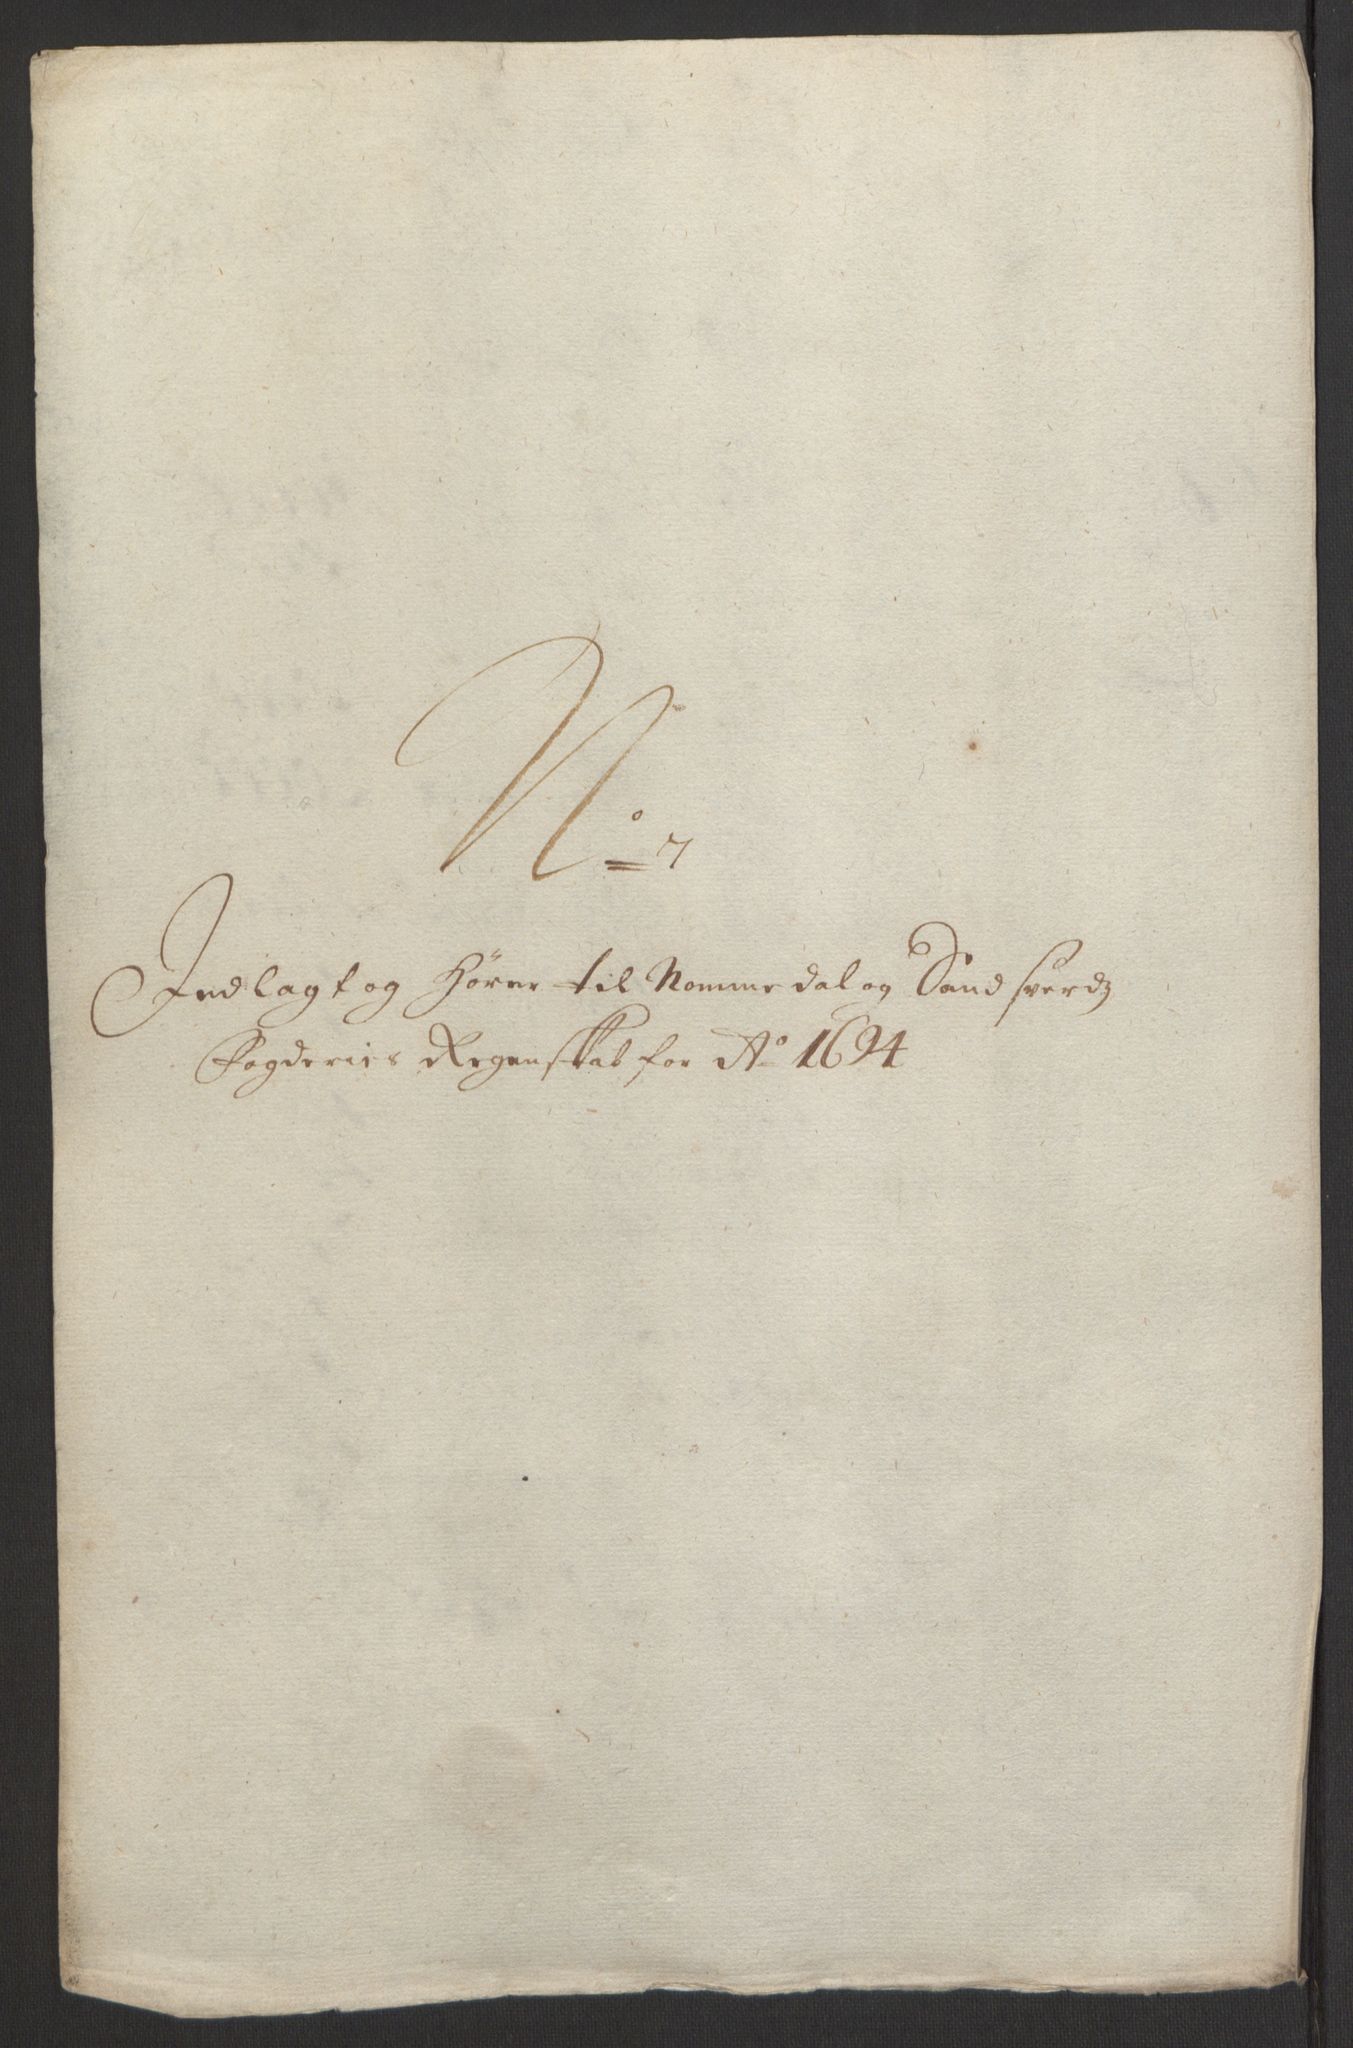 No 7
Indlagt og hörer til Nommedal og Sandsverdz
Fogderies Regenskab for Ao 1694